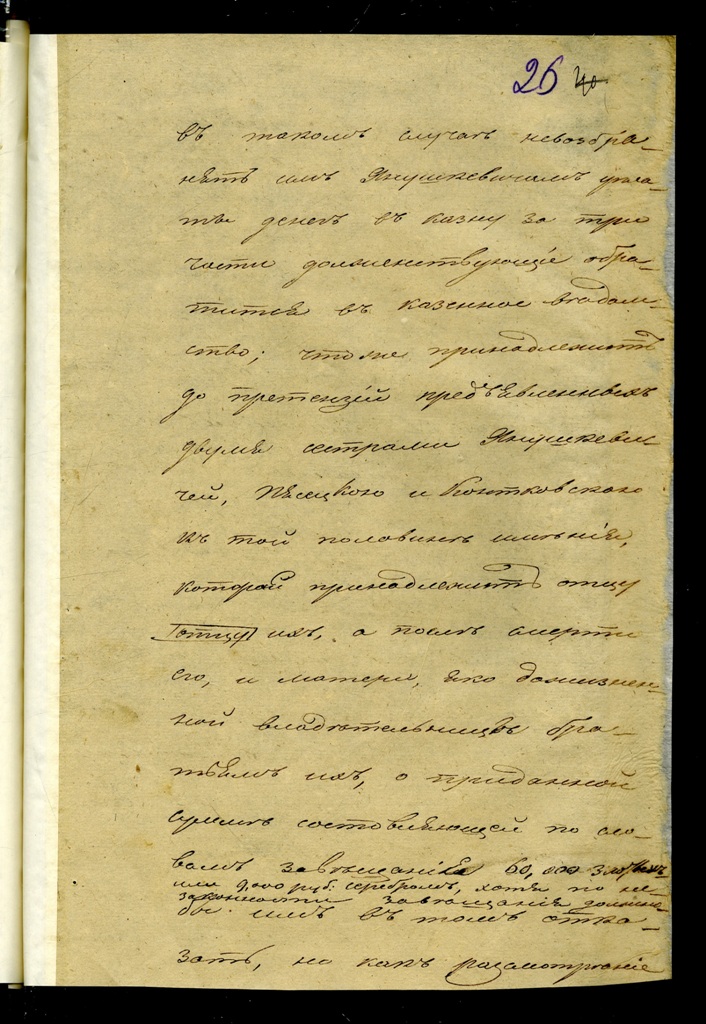 26 40
въ такомъ случаѣ невозбра-
нять имъ Янушкевичамъ упла-
ты денегъ въ казну за три
части долженствующiе обра-
тится въ казенное вѣдом-
ство; что же принадлежитъ
до претензiй предъявленныхъ
двумя сестрами Янушкеви-
чей, и Контковскою
къ той половинѣ имѣнiя,
которой принадлежитъ отцу
отцу ихъ, а послѣ смерти
его, и матери, яко дожизнен-
ной владѣтельницѣ бра-
тьямъ ихъ, о приданной
суммѣ состовляющей по сло-
вамъ завѣщанiя 60,000 злотыхъ
или 9,000 руб: серебромъ, хотя по не-
законности завѣщанiя должно
бы имъ въ томъ отка-
зать, но какъ разсмотрѣнiе